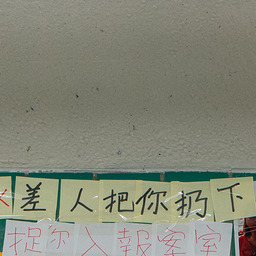 差人把你扔下
捉你入報案室